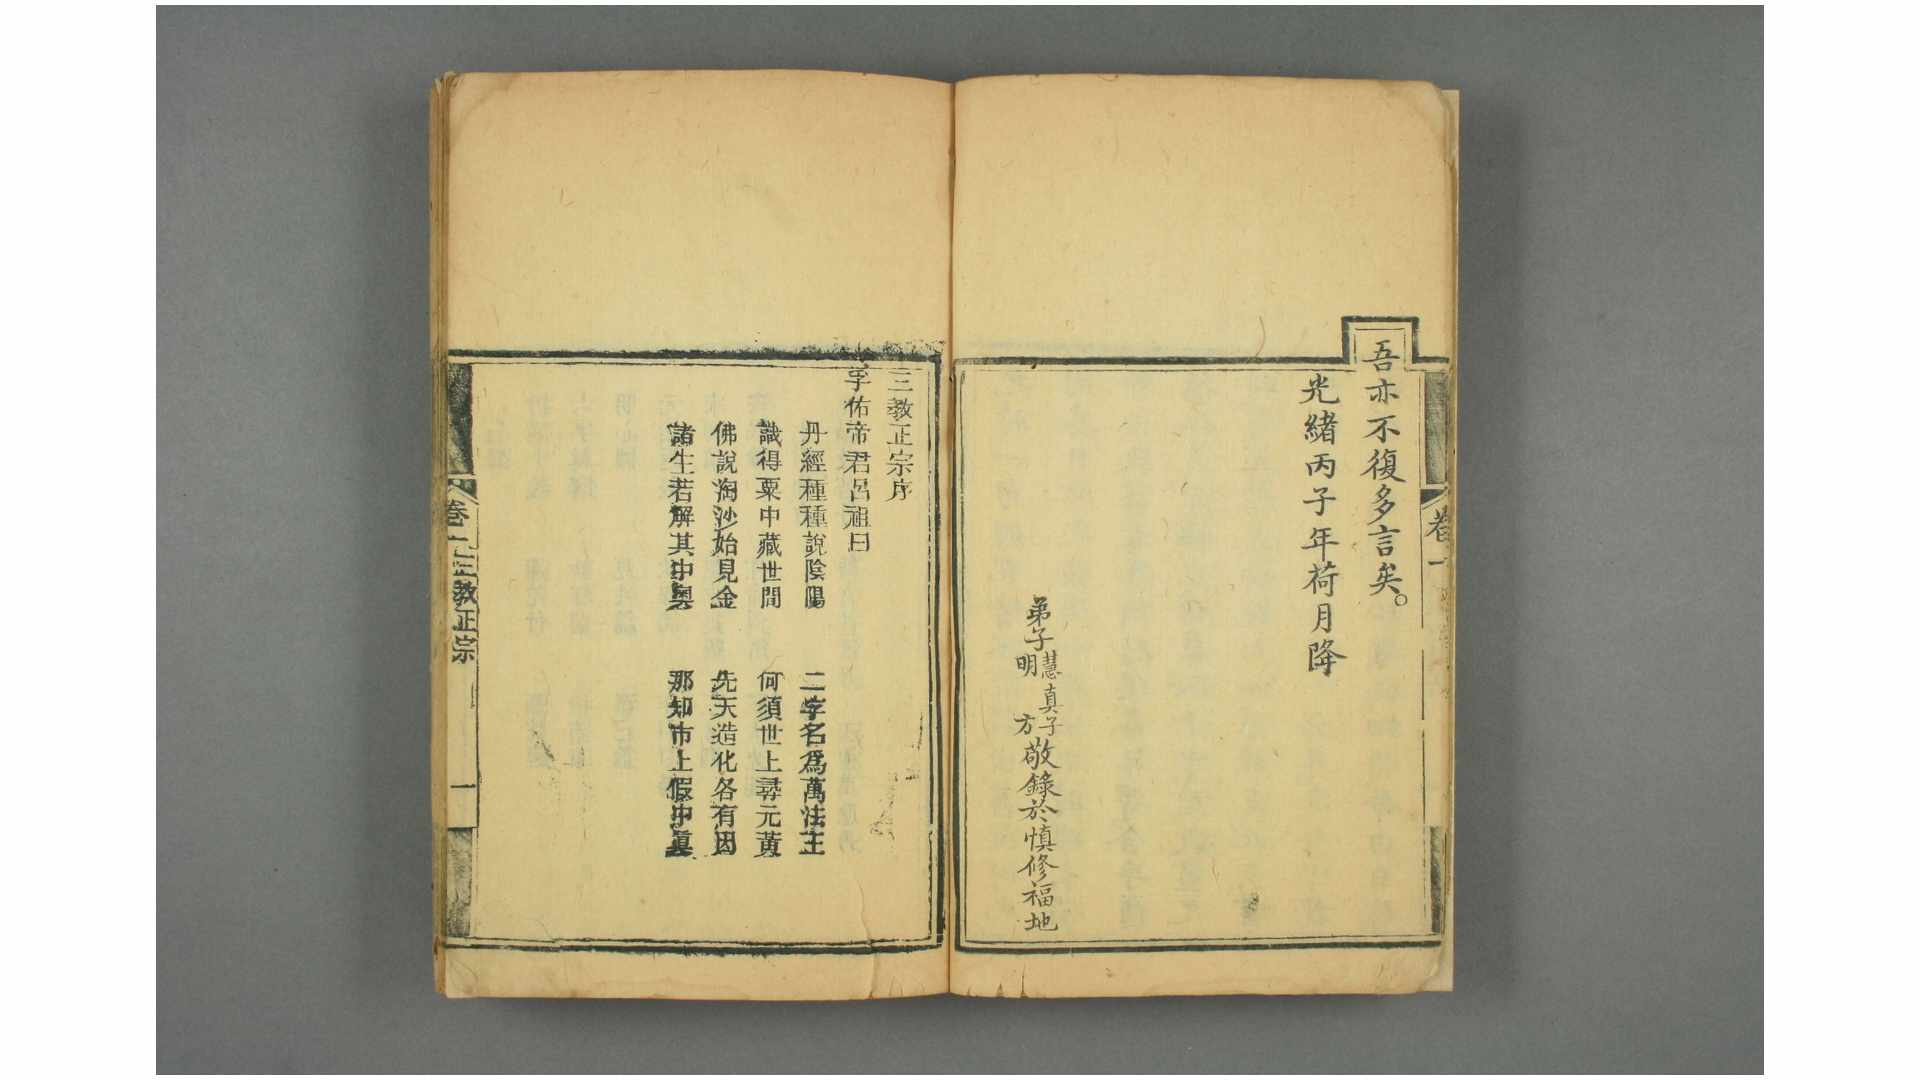 吾亦不復多言矣。
光緒丙子年荷月降
弟子慧真子
明方
敬錄於慎修福地
卷一
三教正宗序
孚佑帝君呂祖曰
丹經種種說陰陽 二字名爲萬法王
識得粟中藏世間 何須世上尋元黃
佛說淘沙始見金 先天造化各有因
諸生若解其中奧 那知市上假中眞
卷一 三教正宗 一